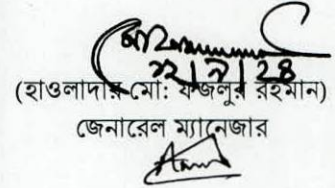 (হাওলাদার মো: ফজলুর রহমান)
জেনারেল ম্যানেজার